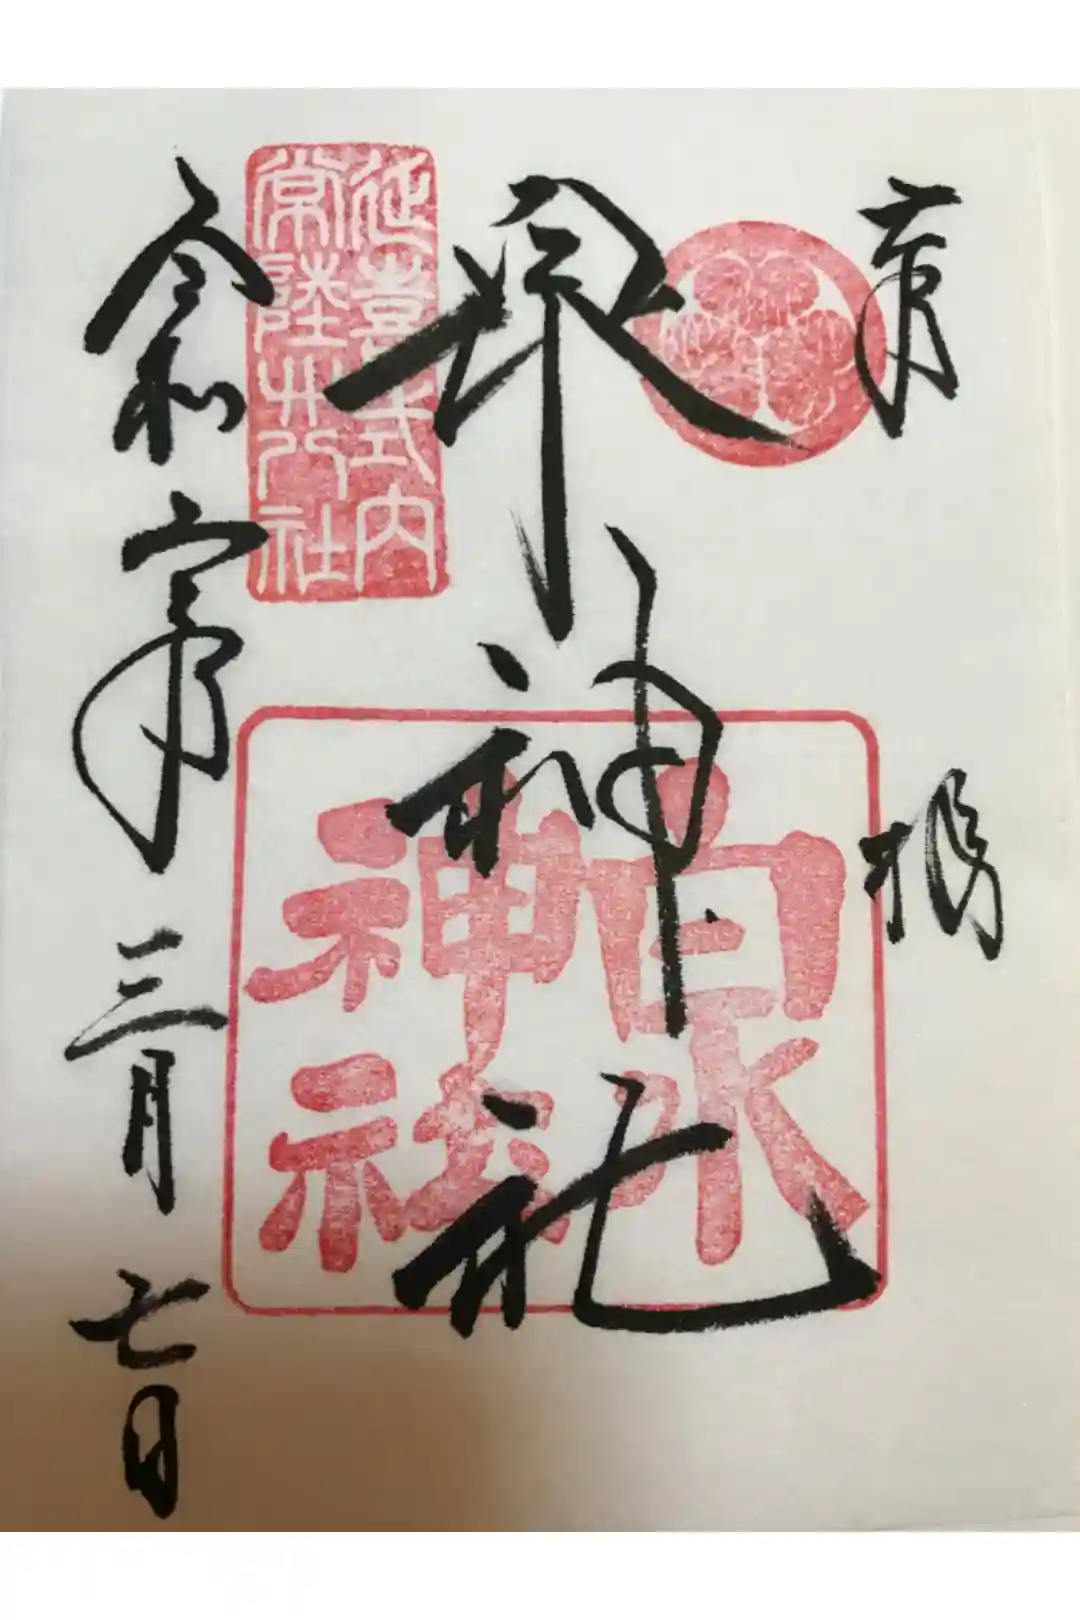 奉拝
泉神社
延喜式内
常陸廿八社
白水
神社
令和
三月七日